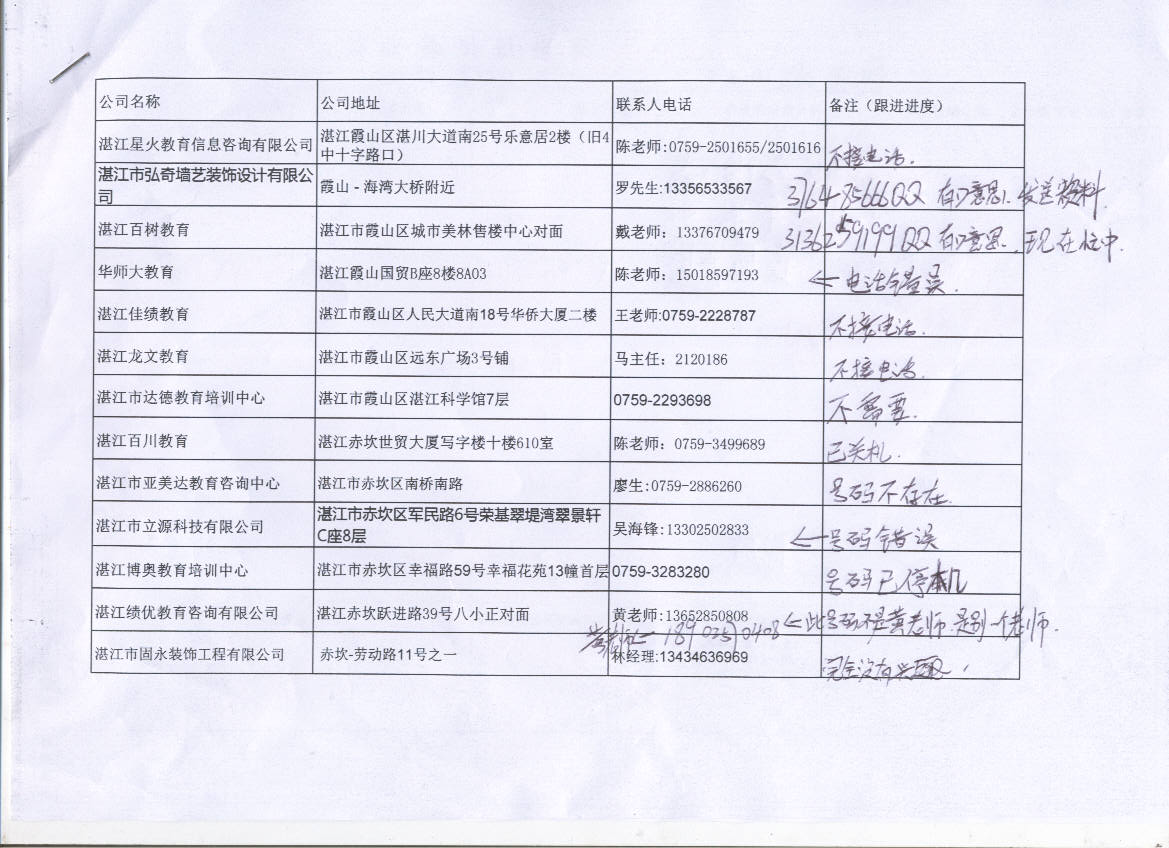 公司名称 公司地址 联系人电话 备注（跟进进度）
湛江星火教育信息咨询有限公司 湛江霞山区湛川大道南25号乐意居2楼（旧4 陈老师:0759-2501655/2501616 不接电话.
中十字路口）
湛江市弘奇墙艺装饰设计有限公 霞山 - 海湾大桥附近 罗先生:13356533567 有意思. 发送资料.
司
湛江百树教育 湛江市霞山区城市美林售楼中心对面 戴老师：13376709479 有意思. 现在忙中.
华师大教育 湛江霞山国贸B座8楼8A03 陈老师：15018597193 ← 电话错误.
湛江佳绩教育 湛江市霞山区人民大道南18号华侨大厦二楼 王老师:0759-2228787 不接电话.
湛江龙文教育 湛江市霞山区远东广场3号铺 马主任：2120186 不接电话.
湛江市达德教育培训中心 湛江市霞山区湛江科学馆7层 0759-2293698 不需要.
湛江百川教育 湛江赤坎世贸大厦写字楼十楼610室 陈老师：0759-3499689 已关机.
湛江市亚美达教育咨询中心 湛江市赤坎区南桥南路 廖生:0759-2886260 号码不存在.
湛江市立源科技有限公司 湛江市赤坎区军民路6号荣基翠堤湾翠景轩 吴海锋:13302502833 ← 号码错误
C座8层
湛江博奥教育培训中心 湛江市赤坎区幸福路59号幸福花苑13幢首层 0759-3283280 号码已停机
湛江绩优教育咨询有限公司 湛江赤坎跃进路39号八小正对面 黄老师:13652850808 ← 此号码不是黄老师.是别一个老师.
湛江市固永装饰工程有限公司 赤坎-劳动路11号之一 林经理:13434636969 完全没有兴趣.